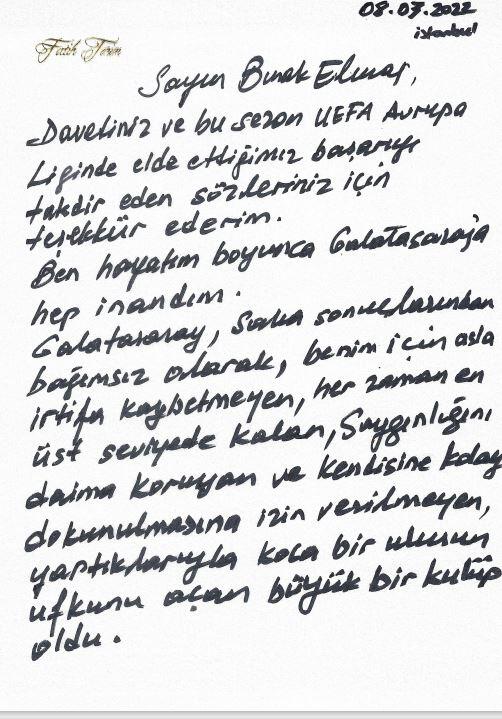 08.03.2022
istanbul
Fatih Terim
Sayın Burak Elmas,
Davetiniz ve bu sezon UEFA Avrupa
Liginde elde ettiğimiz başarıyı
takdir eden sözleriniz için
teşekkür ederim.
Ben hayatım boyunca Galatasaray'a
hep inandım.
Galatasaray, saha sonuçlarından
bağımsız olarak, benim için asla
irtifa kaybetmeyen, her zaman en
üst seviyede kalan, Saygınlığını
daima koruyan ve kendisine kolay
dokunulmasına izin verilmeyen,
yaptıklarıyla koca bir ulusun
ufkunu açan büyük bir kulüp
oldu.